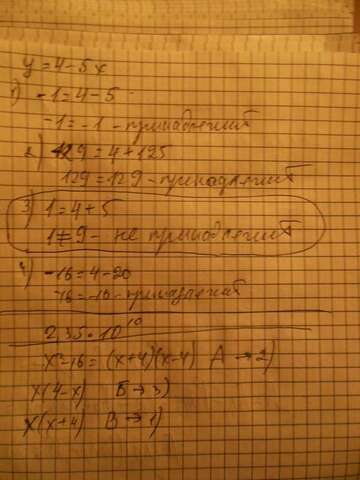 y = 4-5x
1) -1 = 4-5
-1 = -1 - принадлежит
2) 129 = 4+125
129 = 129 - принадлежит
3) 1 = 4+5
1 ≠ 9 - не принадлежит
4) -16 = 4-20
-16 = -16 - принадлежит
2,35 · 10¹⁰
x²-16 = (x+4)(x-4) А → 2)
x(4-x) Б → 3)
x(x+4) В → 1)